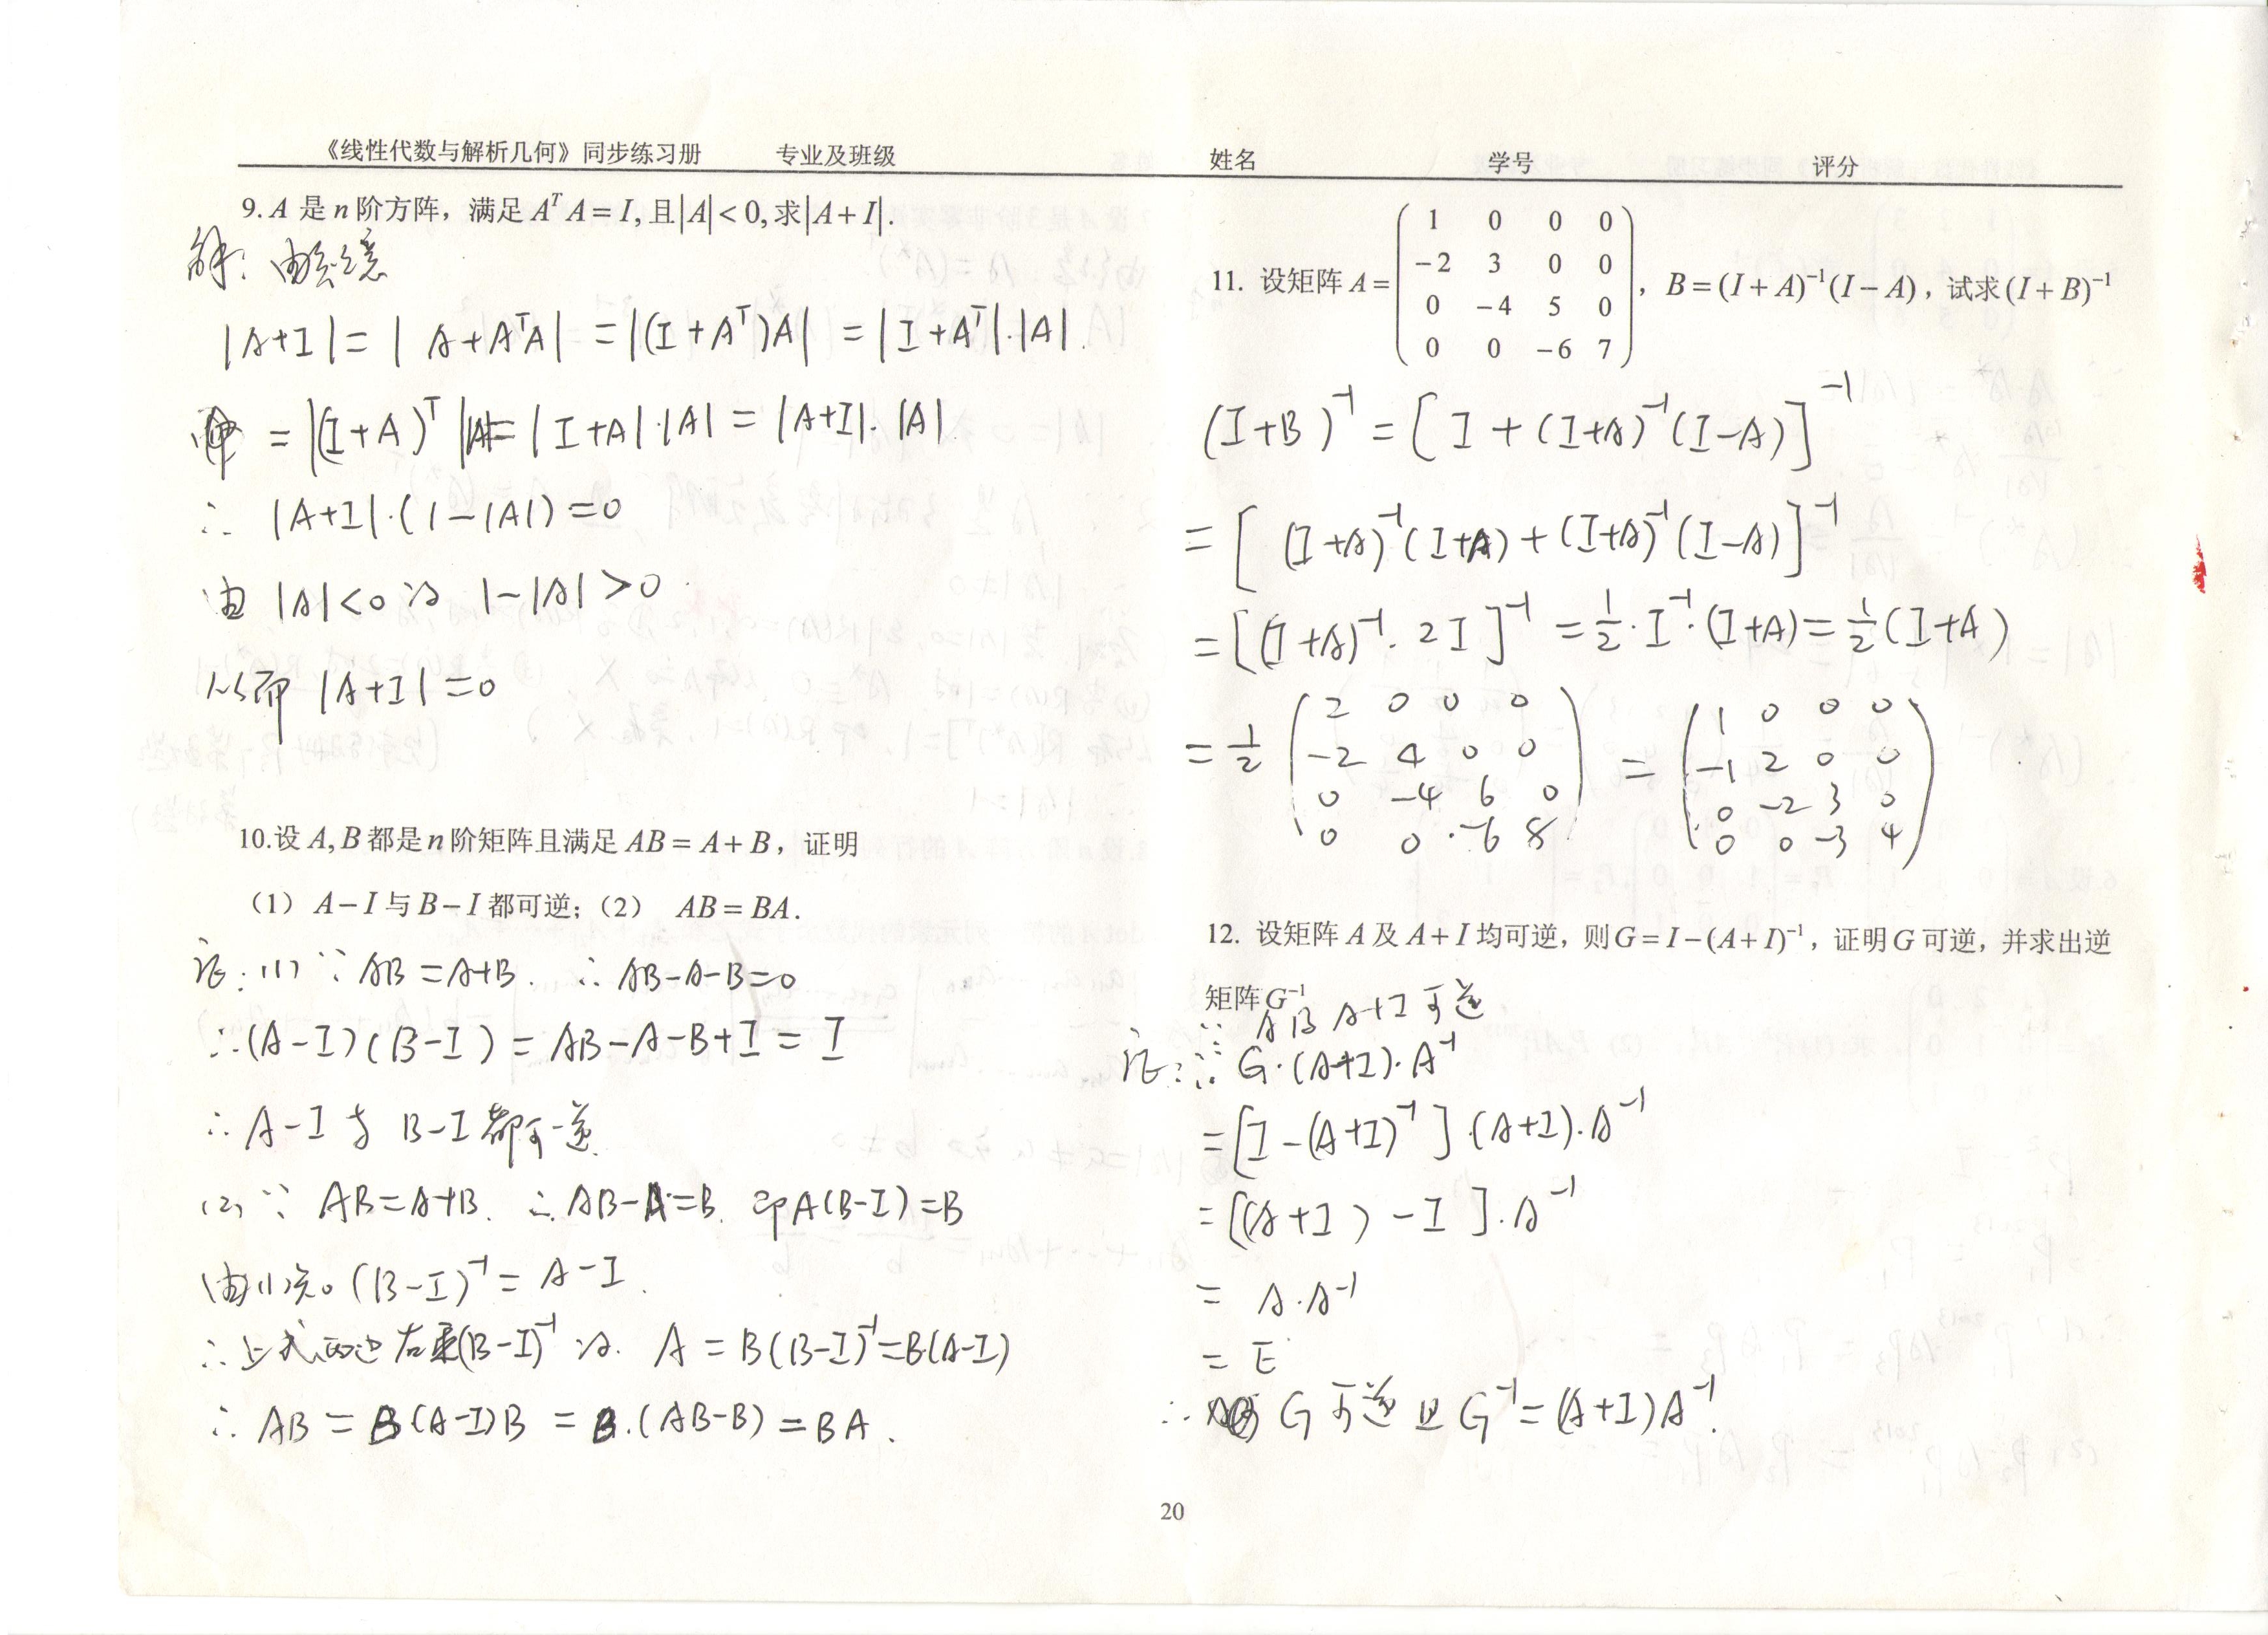 《线性代数与解析几何》同步练习册 专业及班级 姓名 学号 评分
9. A 是 n 阶方阵，满足 A^T A = I, 且 |A| < 0, 求 |A+I|.
解: 由题意
|A+I| = | A+A^TA| = |(I+A^T)A| = |I+A^T|·|A|.
= |(I+A)^T||A| = |I+A|·|A| = |A+I|·|A|.
∴ |A+I|·(1-|A|) = 0
由 |A|<0 故 1-|A| > 0
从而 |A+I| = 0
10.设 A, B 都是 n 阶矩阵且满足 AB = A + B，证明
（1） A − I 与 B − I 都可逆;（2） AB = BA.
证: (1) ∵ AB = A+B. ∴ AB-A-B=0
∴ (A-I)(B-I) = AB-A-B+I = I
∴ A-I 与 B-I 都可逆.
(2) ∵ AB=A+B. ∴ AB-A=B. 即A(B-I)=B
由(1)知 (B-I)^-1 = A-I.
∴上式两边右乘(B-I)^-1 故. A = B(B-I)^-1=B(A-I)
∴ AB = B(A-I)B = B.(AB-B) = BA.
11. 设矩阵 A =
1 0 0 0
-2 3 0 0
0 -4 5 0
0 0 -6 7
，B = (I + A)^-1 (I − A)，试求 (I + B)^-1
(I+B)^-1 = [I + (I+A)^-1 (I-A)]^-1
= [(I+A)^-1 (I+A) + (I+A)^-1 (I-A)]^-1
= [(I+A)^-1 · 2I]^-1 = 1/2 · I^-1 · (I+A) = 1/2 (I+A)
= 1/2
2 0 0 0
-2 4 0 0
0 -4 6 0
0 0 -6 8
=
1 0 0 0
-1 2 0 0
0 -2 3 0
0 0 -3 4
12. 设矩阵 A 及 A + I 均可逆，则 G = I − (A + I)^-1，证明 G 可逆，并求出逆
矩阵 G^-1
∵ A 及 A+I 可逆
证: ∴ G·(A+I)·A^-1
= [I-(A+I)^-1]·(A+I)·A^-1
= [(A+I) - I]·A^-1
= A·A^-1
= E
∴ G 可逆 且 G^-1 = (A+I)A^-1.
20